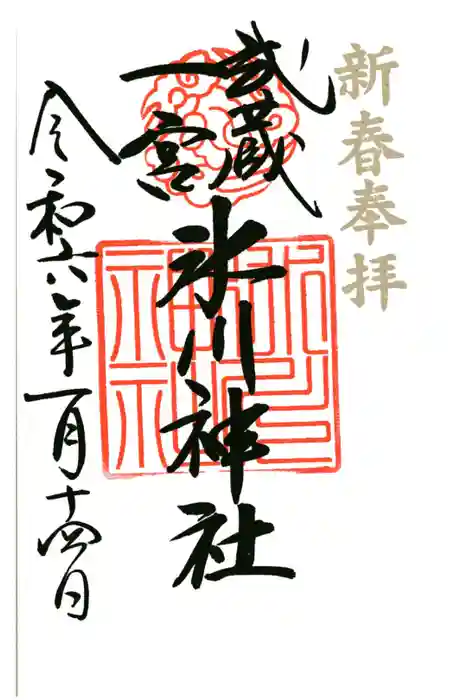 新春奉拝
武蔵
一宮
氷川神社
令和六年一月十四日
氷川
神社